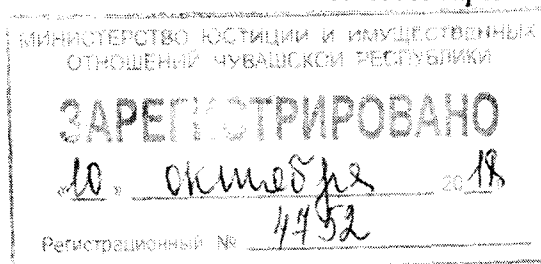 МИНИСТЕРСТВО ЮСТИЦИИ И ИМУЩЕСТВЕННЫХ
ОТНОШЕНИЙ ЧУВАШСКОЙ РЕСПУБЛИКИ
ЗАРЕГИСТРИРОВАНО
«10» октября 2018
Регистрационный № 4752